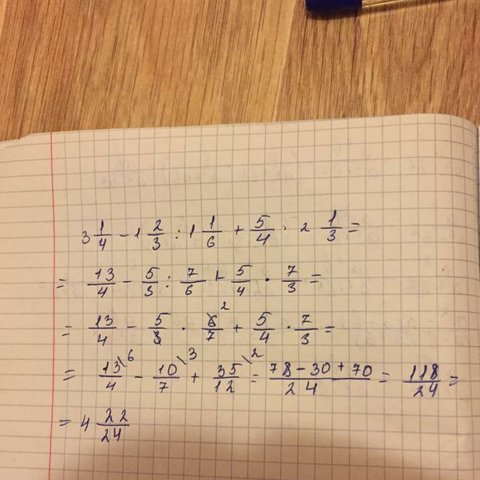 3 1/4 - 1 2/3 : 1 1/6 + 5/4 · 2 1/3 =
= 13/4 - 5/3 : 7/6 + 5/4 · 7/3 =
= 13/4 - 5/3 · 6/7 2 + 5/4 · 7/3 =
= 13/4 \6 - 10/7 \3 + 35/12 \2 = 78 - 30 + 70/24 = 118/24 =
= 4 22/24